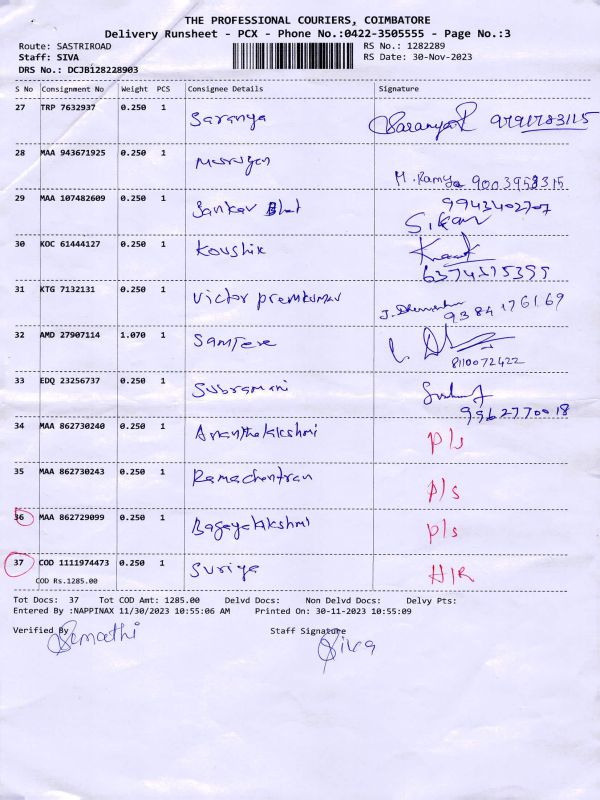 THE PROFESSIONAL COURIERS, COIMBATORE
Delivery Runsheet - PCX - Phone No.:0422-3505555 - Page No.:3
Route: SASTRIROAD RS No.: 1282289
Staff: SIVA RS Date: 30-Nov-2023
DRS No.: DCJB128228903
S No Consignment No Weight PCS Consignee Details Signature
27 TRP 7632937 0.250 1 Saranya Saranya 9791783115
28 MAA 943671925 0.250 1 Murugen M. Ramya 9003958315
29 MAA 107482609 0.250 1 Sankar Bhat 9943402707
30 KOC 61444127 0.250 1 Koushik
31 KTG 7132131 0.250 1 Victor Premkumar 9384176169
32 AMD 27907114 1.070 1 8110072422
33 EDQ 23256737 0.250 1 Subramani 9962770018
34 MAA 862730240 0.250 1 Ananthalakshmi P/s
35 MAA 862730243 0.250 1 Ramachentran P/s
36 MAA 862729099 0.250 1 Bagayalakshmi P/s
37 COD 1111974473 0.250 1 Suriya H/R
COD Rs.1285.00
Tot Docs: 37 Tot COD Amt: 1285.00 Delvd Docs: Non Delvd Docs: Delvy Pts:
Entered By :NAPPINAX 11/30/2023 10:55:06 AM Printed On: 30-11-2023 10:55:09
Verified By Staff Signature
Siva